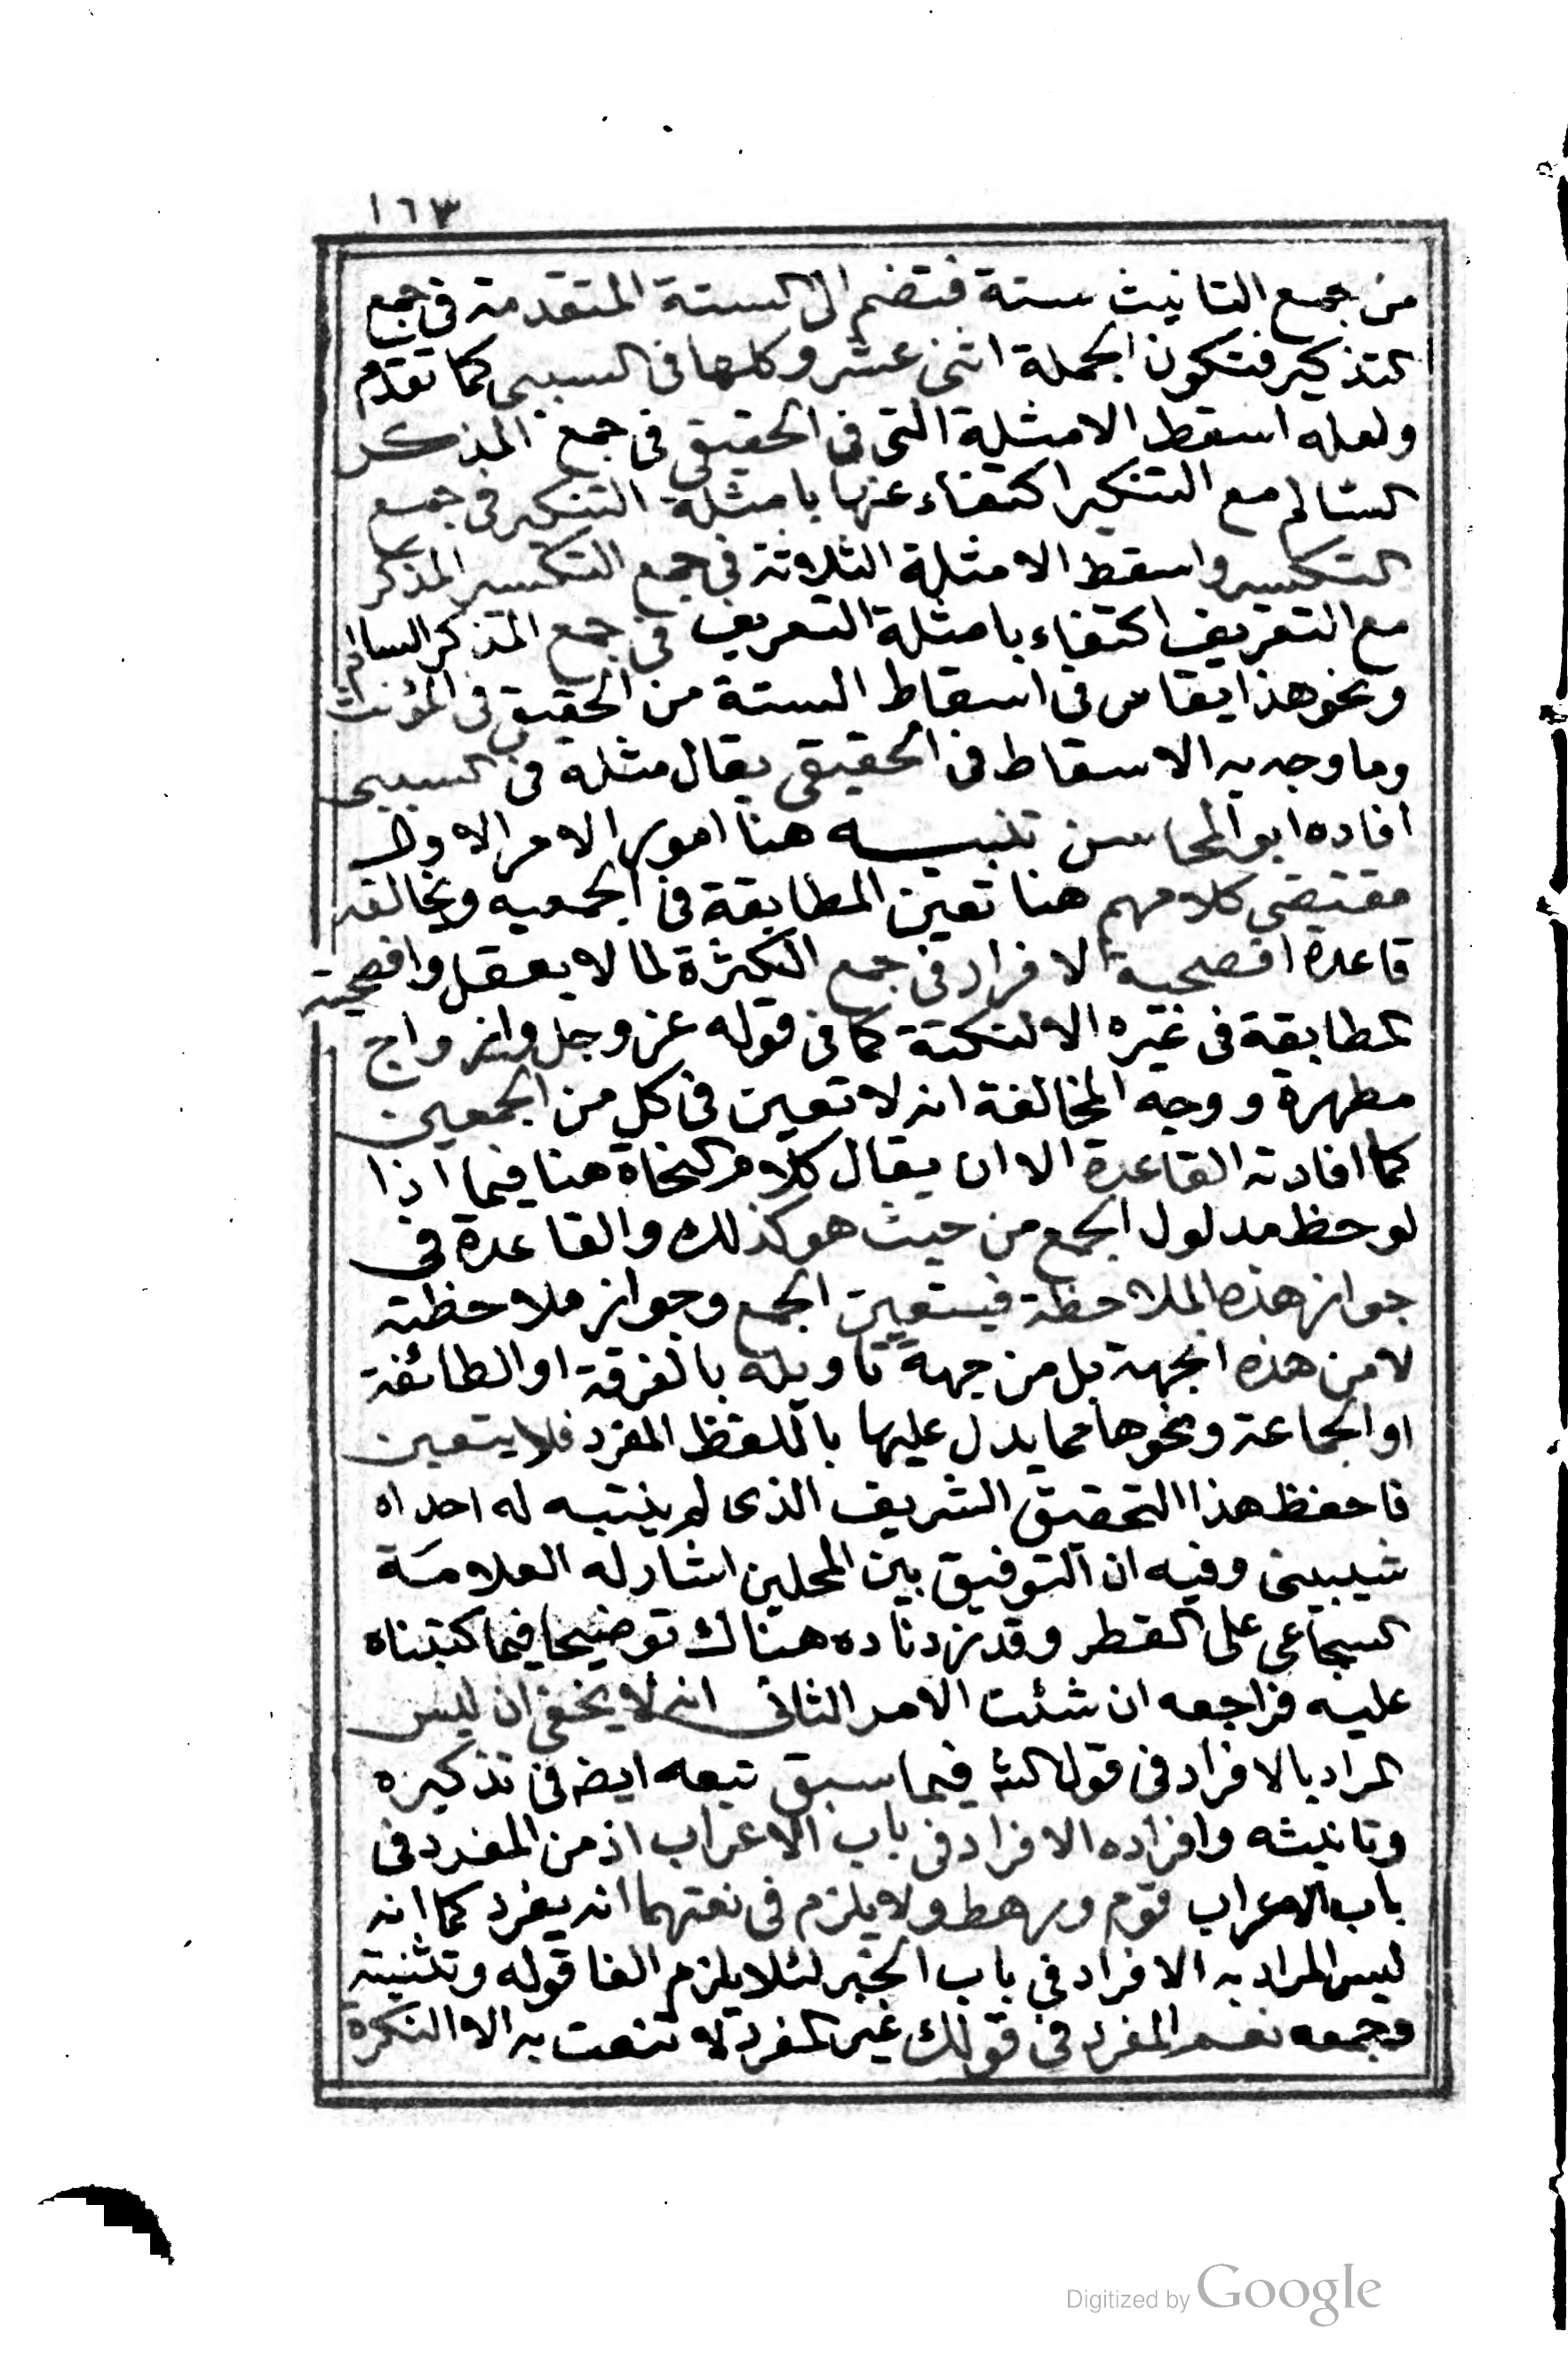 ١٦٣
من جمع التانيث ستة فتضم الى الستة المتقدمة فى جمع
التذكير فتكون الجملة اثنى عشر وكلها فى السببى كما تقدم
ولعله اسقط الامثلة التى فى الحقيقى فى جمع المذكر
السالم مع التنكير اكتفاء عنها بامثلة التنكير فى جمع
التكسير واسقط الامثلة الثلاثة فى جمع التكسير المذكر
مع التعريف اكتفاء بامثلة التعريف فى جمع المذكر السالم
ونحو هذا يقاس فى اسقاط الستة من الحقيقى فى المؤنث
وما وجه به الاسقاط فى الحقيقى يقال مثله فى السببى
افاده ابو المحاسن تنبيه هنا امور الامر الاول
مقتضى كلامهم هنا تعين المطابقة فى الجمعيه ويخالفه
قاعدة افصحية الافراد فى جمع الكثرة لما لا يعقل وافصحية
المطابقة فى غيره الا لنكتة كما فى قوله عز وجل وازواج
مطهرة ووجه المخالفة انه لا تعين فى كل من الجمعين
كما افادته القاعدة الا ان يقال كلام النحاة هنا فيما اذا
لوحظ مدلول الجمع من حيث هو كذلك والقاعدة فى
جواز هذه الملاحظة فيتعين الجمع وجواز ملاحظته
لا من هذه الجهة بل من جهة تاويله بالفرقة او الطائفة
او الجماعة ونحوها مما يدل عليها باللفظ المفرد فلا يتعين
فاحفظ هذا التحقيق الشريف الذى لم ينتبه له احد اه
شيبينى وفيه ان التوفيق بين المحلين اشار له العلامة
السجاعى على القطر وقد زدناده هناك توضيحا فيما كتبناه
عليه فراجعه ان شئت الامر الثانى انه لا يخفى ان ليس
المراد بالافراد فى قول الش فيما سبق تبعه ايضه فى تذكيره
وتانيثه وافراده الافراد فى باب الاعراب اذ من المفرد فى
باب الاعراب قوم ورهط ولا يلزم فى نعتهما انه يفرد كما انه
ليس المراد به الافراد فى باب الخبر لئلا يلزم الغا قوله وتثنيته
وجمعه نعم المفرد فى قولك غير المفرد لا تنعت به الا النكرة
Digitized by Google